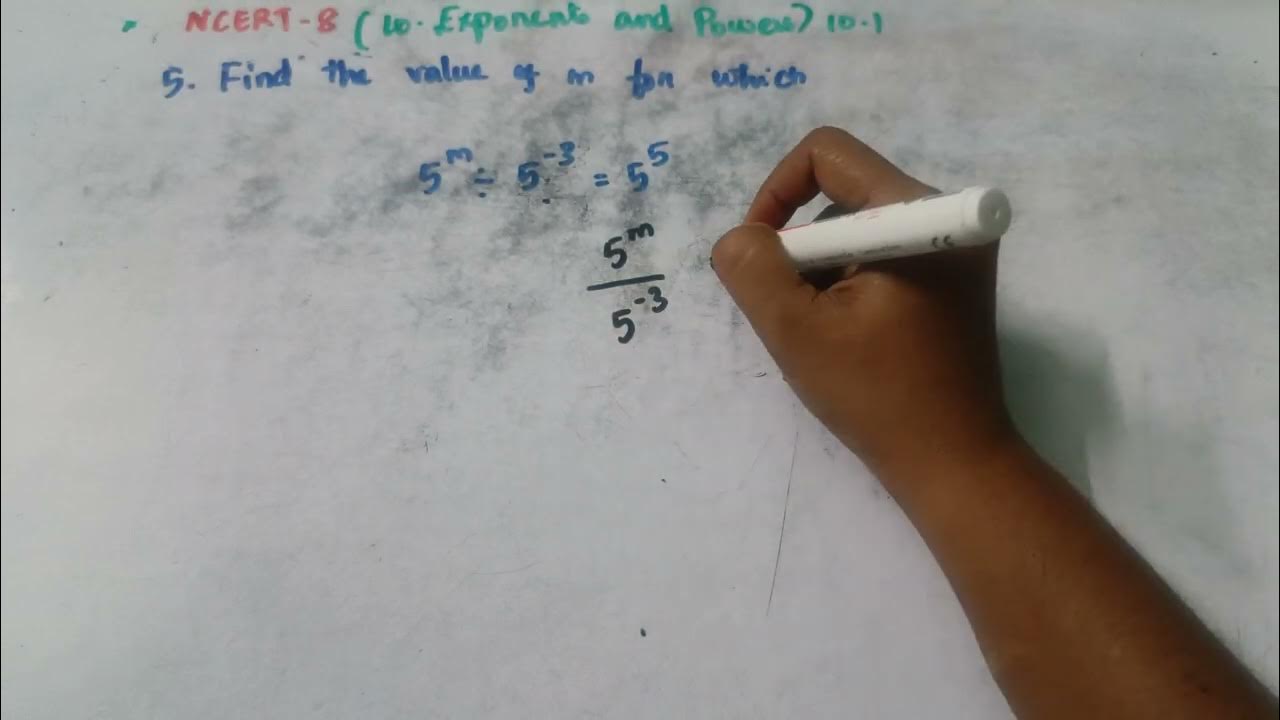 NCERT-8 (10. Exponents and Powers) 10.1
5. Find the value of m for which
5^m ÷ 5^-3 = 5^5
5^m
5^-3